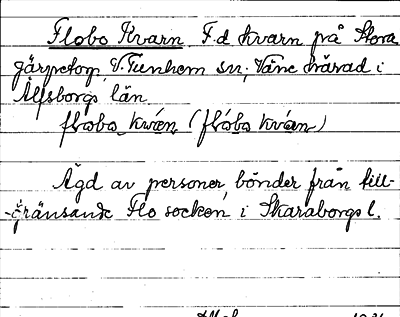 Flobo Kvarn F.d kvarn på Stora
gärpetorp, V. Tunhem sn, Väne härad i
Älfsborgs län
flóbo kván (flóbo kván)
Ägd av personer, bönder från till-
-gränsande Flo socken i Skaraborgs l.